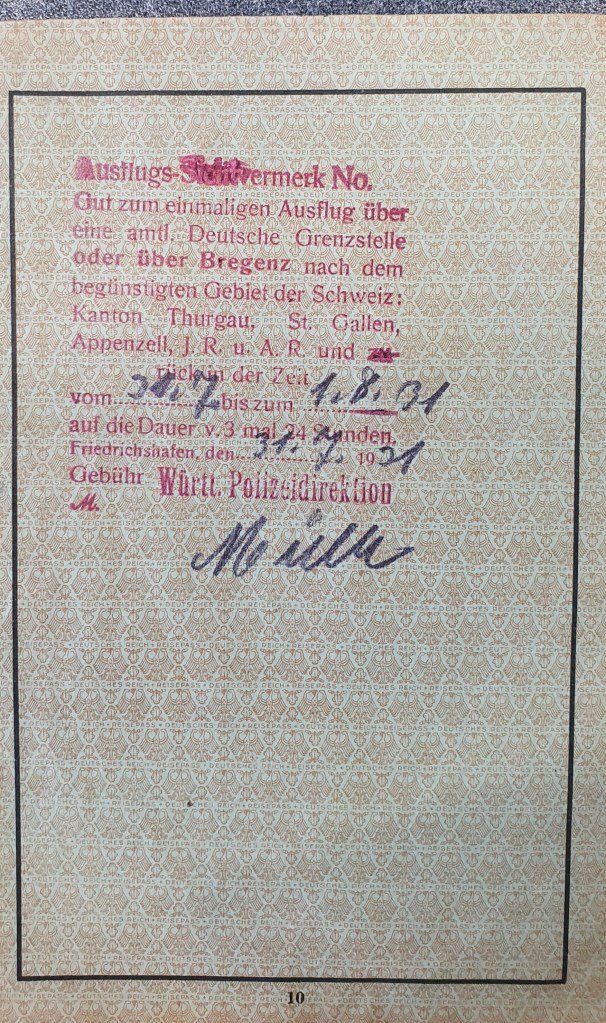 Ausflugs-Sichtvermerk No.
Gut zum einmaligen Ausflug über
eine amtl. Deutsche Grenzstelle
oder über Bregenz nach dem
begünstigten Gebiet der Schweiz:
Kanton Thurgau, St. Gallen,
Appenzell, J. R. u. A. R. und zu-
rück in der Zeit
vom 31. 7. bis zum 1. 8. 31
auf die Dauer v. 3 mal 24 Stunden.
Friedrichshafen, den 31. 7. 1931
Gebühr Württ. Polizeidirektion
M.
10